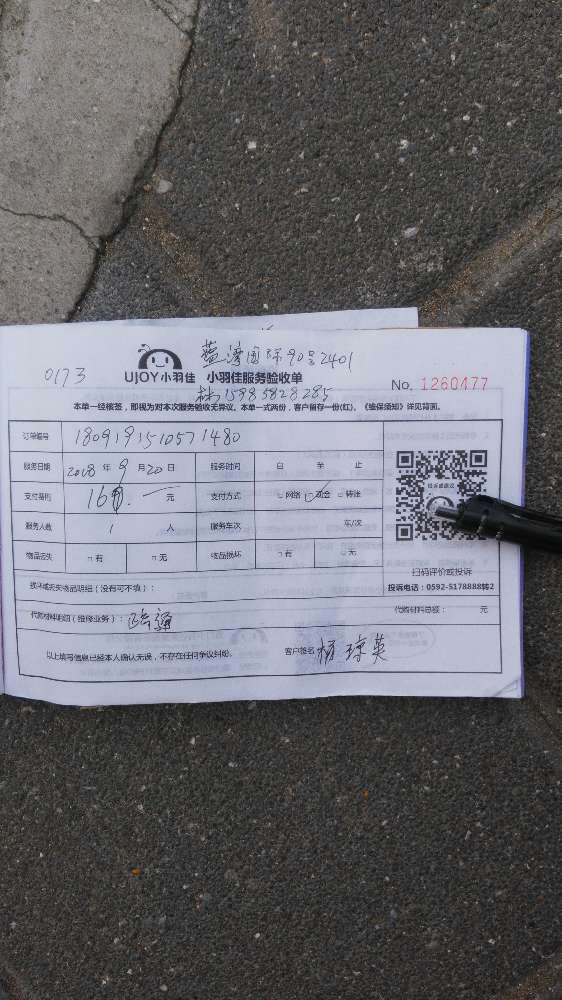 蓝湾国际90号2401
0173
UJOY小羽佳 小羽佳服务验收单
林15985828285
No. 1260477
本单一经核签，即视为对本次服务验收无异议。本单一式两份，客户留存一份(红)。《维保须知》详见背面。
订单编号 1809191510571480
服务日期 2018年9月20日 服务时间 自 至 止
支付费用 元 支付方式 网络 现金 转账
服务人数 1 人 服务车次 车/次
物品丢失 有 无 物品损坏 有 无
投诉或建议
扫码评价或投诉
投诉电话：0592-5178888转2
损坏或丢失物品明细（没有可不填）：
代购材料明细（维修业务）：疏通 代购材料总额： 元
以上填写信息已经本人确认无误，不存在任何争议纠纷。 客户签名 杨琼英